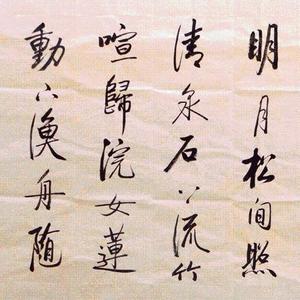 明月松間照
清泉石上流竹
喧歸浣女蓮
動下漁舟随